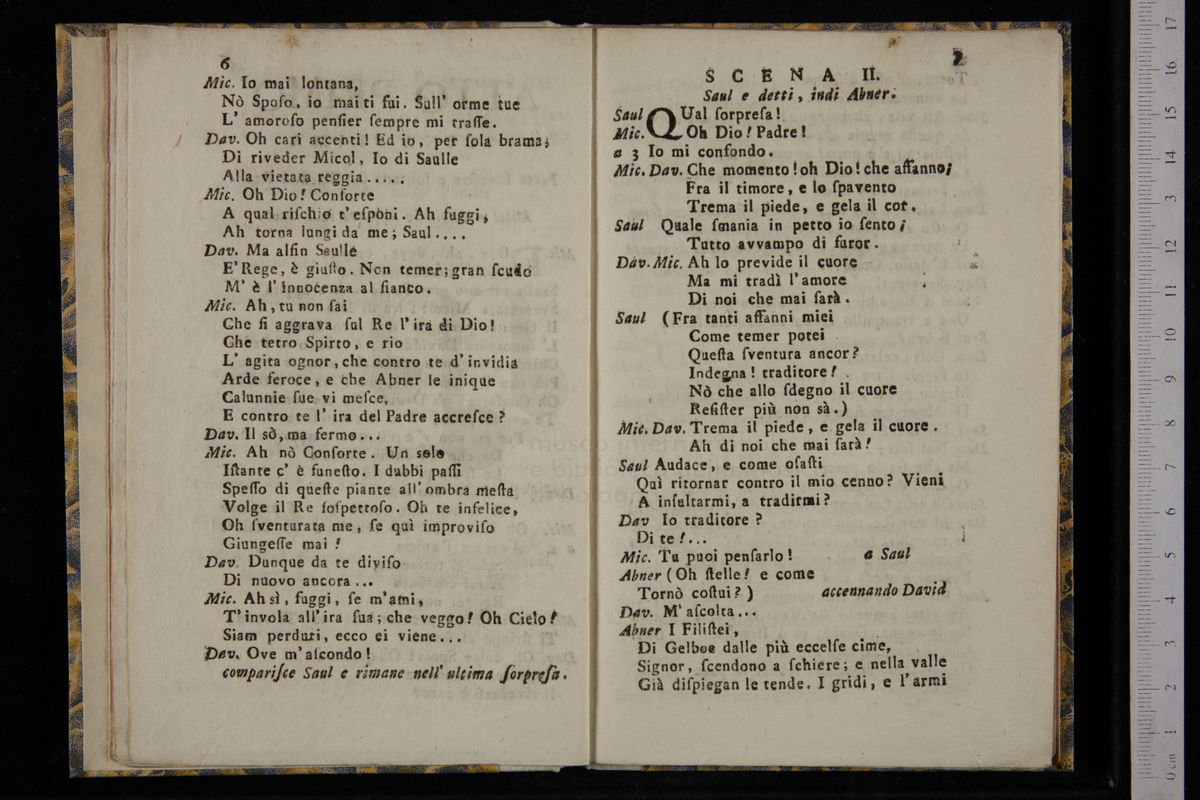 6
Mic. Io mai lontana,
Nò Spoſo, io mai ti fui. Sull' orme tue
L' amoroſo penſier ſempre mi traſſe.
Dav. Oh cari accenti! Ed io, per ſola brama,
Di riveder Micol, Io di Saulle
Alla vietata reggia.....
Mic. Oh Dio! Conſorte
A qual riſchio t' eſponi. Ah fuggi,
Ah torna lungi da me; Saul....
Dav. Ma alfin Saulle
E' Rege, è giuſto. Non temer; gran ſcudo
M' è l' innocenza al fianco.
Mic. Ah, tu non ſai
Che ſi aggrava ſul Re l' ira di Dio!
Che tetro Spirto, e rio
L' agita ognor, che contro te d' invidia
Arde feroce, e che Abner le inique
Calunnie ſue vi meſce,
E contro te l' ira del Padre accreſce?
Dav. Il sò, ma fermo...
Mic. Ah nò Conſorte. Un solo
Iſtante c' è funeſto. I dubbi paſſi
Speſſo di queſte piante all' ombra meſta
Volge il Re ſoſpettoſo. Oh te infelice,
Oh ſventurata me, ſe quì improviſo
Giungeſſe mai!
Dav. Dunque da te diviſo
Di nuovo ancora...
Mic. Ah sì, fuggi, ſe m'ami,
T' invola all' ira ſua; che veggo! Oh Cielo!
Siam perduti, ecco ei viene...
Dav. Ove m' aſcondo!
compariſce Saul e rimane nell' ultima ſorpreſa.
7
SCENA II.
Saul e detti, indi Abner.
Saul QUal ſorpreſa!
Mic. Oh Dio! Padre!
a 3 Io mi confondo.
Mic. Dav. Che momento! oh Dio! che affanno;
Fra il timore, e lo ſpavento
Trema il piede, e gela il cor.
Saul Quale ſmania in petto io ſento;
Tutto avvampo di furor.
Dav. Mic. Ah lo previde il cuore
Ma mi tradì l'amore
Di noi che mai ſarà.
Saul (Fra tanti affanni miei
Come temer potei
Queſta ſventura ancor?
Indegna! traditore!
Nò che allo ſdegno il cuore
Reſiſter più non sà.)
Mic. Dav. Trema il piede, e gela il cuore.
Ah di noi che mai ſarà!
Saul Audace, e come oſaſti
Quì ritornar contro il mio cenno? Vieni
A inſultarmi, a tradirmi?
Dav Io traditore?
Di te!...
Mic. Tu puoi penſarlo! a Saul
Abner (Oh ſtelle! e come
Tornò coſtui?) accennando David
Dav. M' aſcolta...
Abner I Filiſtei,
Di Gelboe dalle più eccelſe cime,
Signor, ſcendono a ſchiere; e nella valle
Già diſpiegan le tende. I gridi, e l'armi